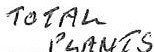 TOTAL
PLANTS